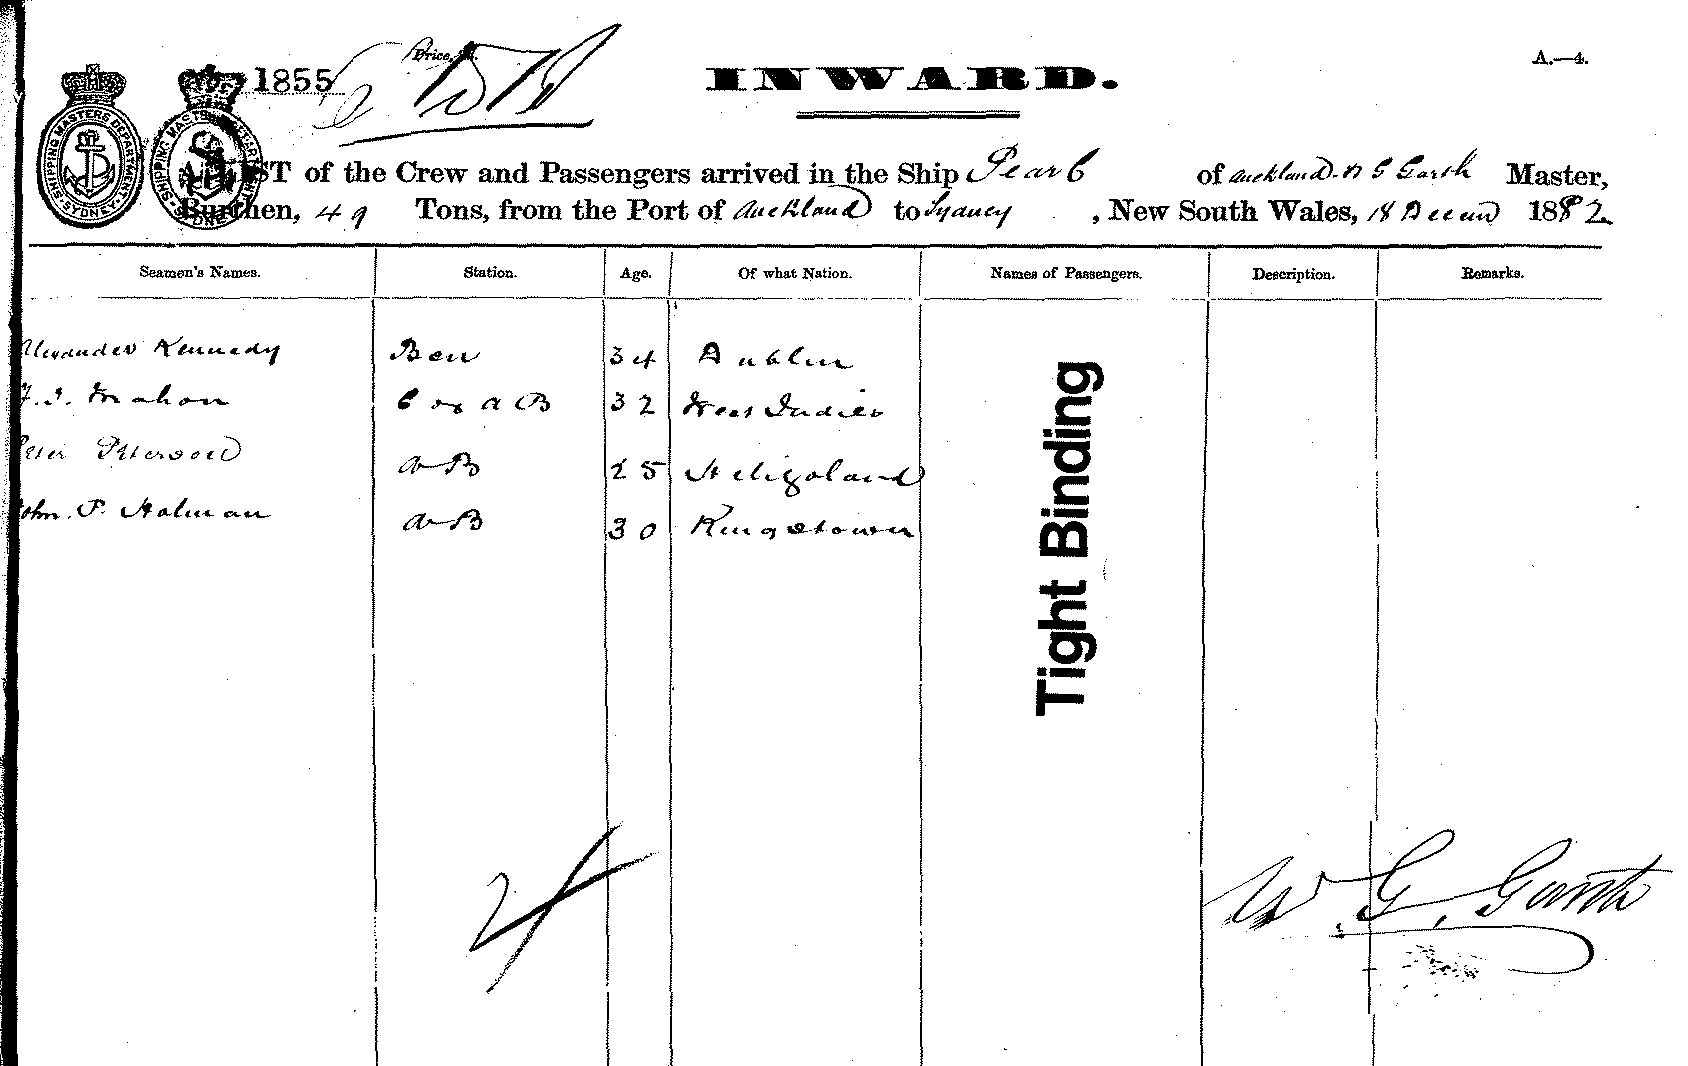 1855
Price,
INWARD.
A.—4.
SHIPPING MASTERS DEPARTMENT SYDNEY
A LIST of the Crew and Passengers arrived in the Ship Pearl of Auckland. W G Garth Master,
Burthen, 49 Tons, from the Port of Auckland to Sydney, New South Wales, 18 Decem 1882
Seamen's Names. Station. Age. Of what Nation. Names of Passengers. Description. Remarks.
Alexander Kennedy 34 Dublin
Mahon A B 32 West Indies
Peter Peterson A B 25 Heligoland
John. P. Holman A B 30 Kingstown
Tight Binding
4
W. G. Garth